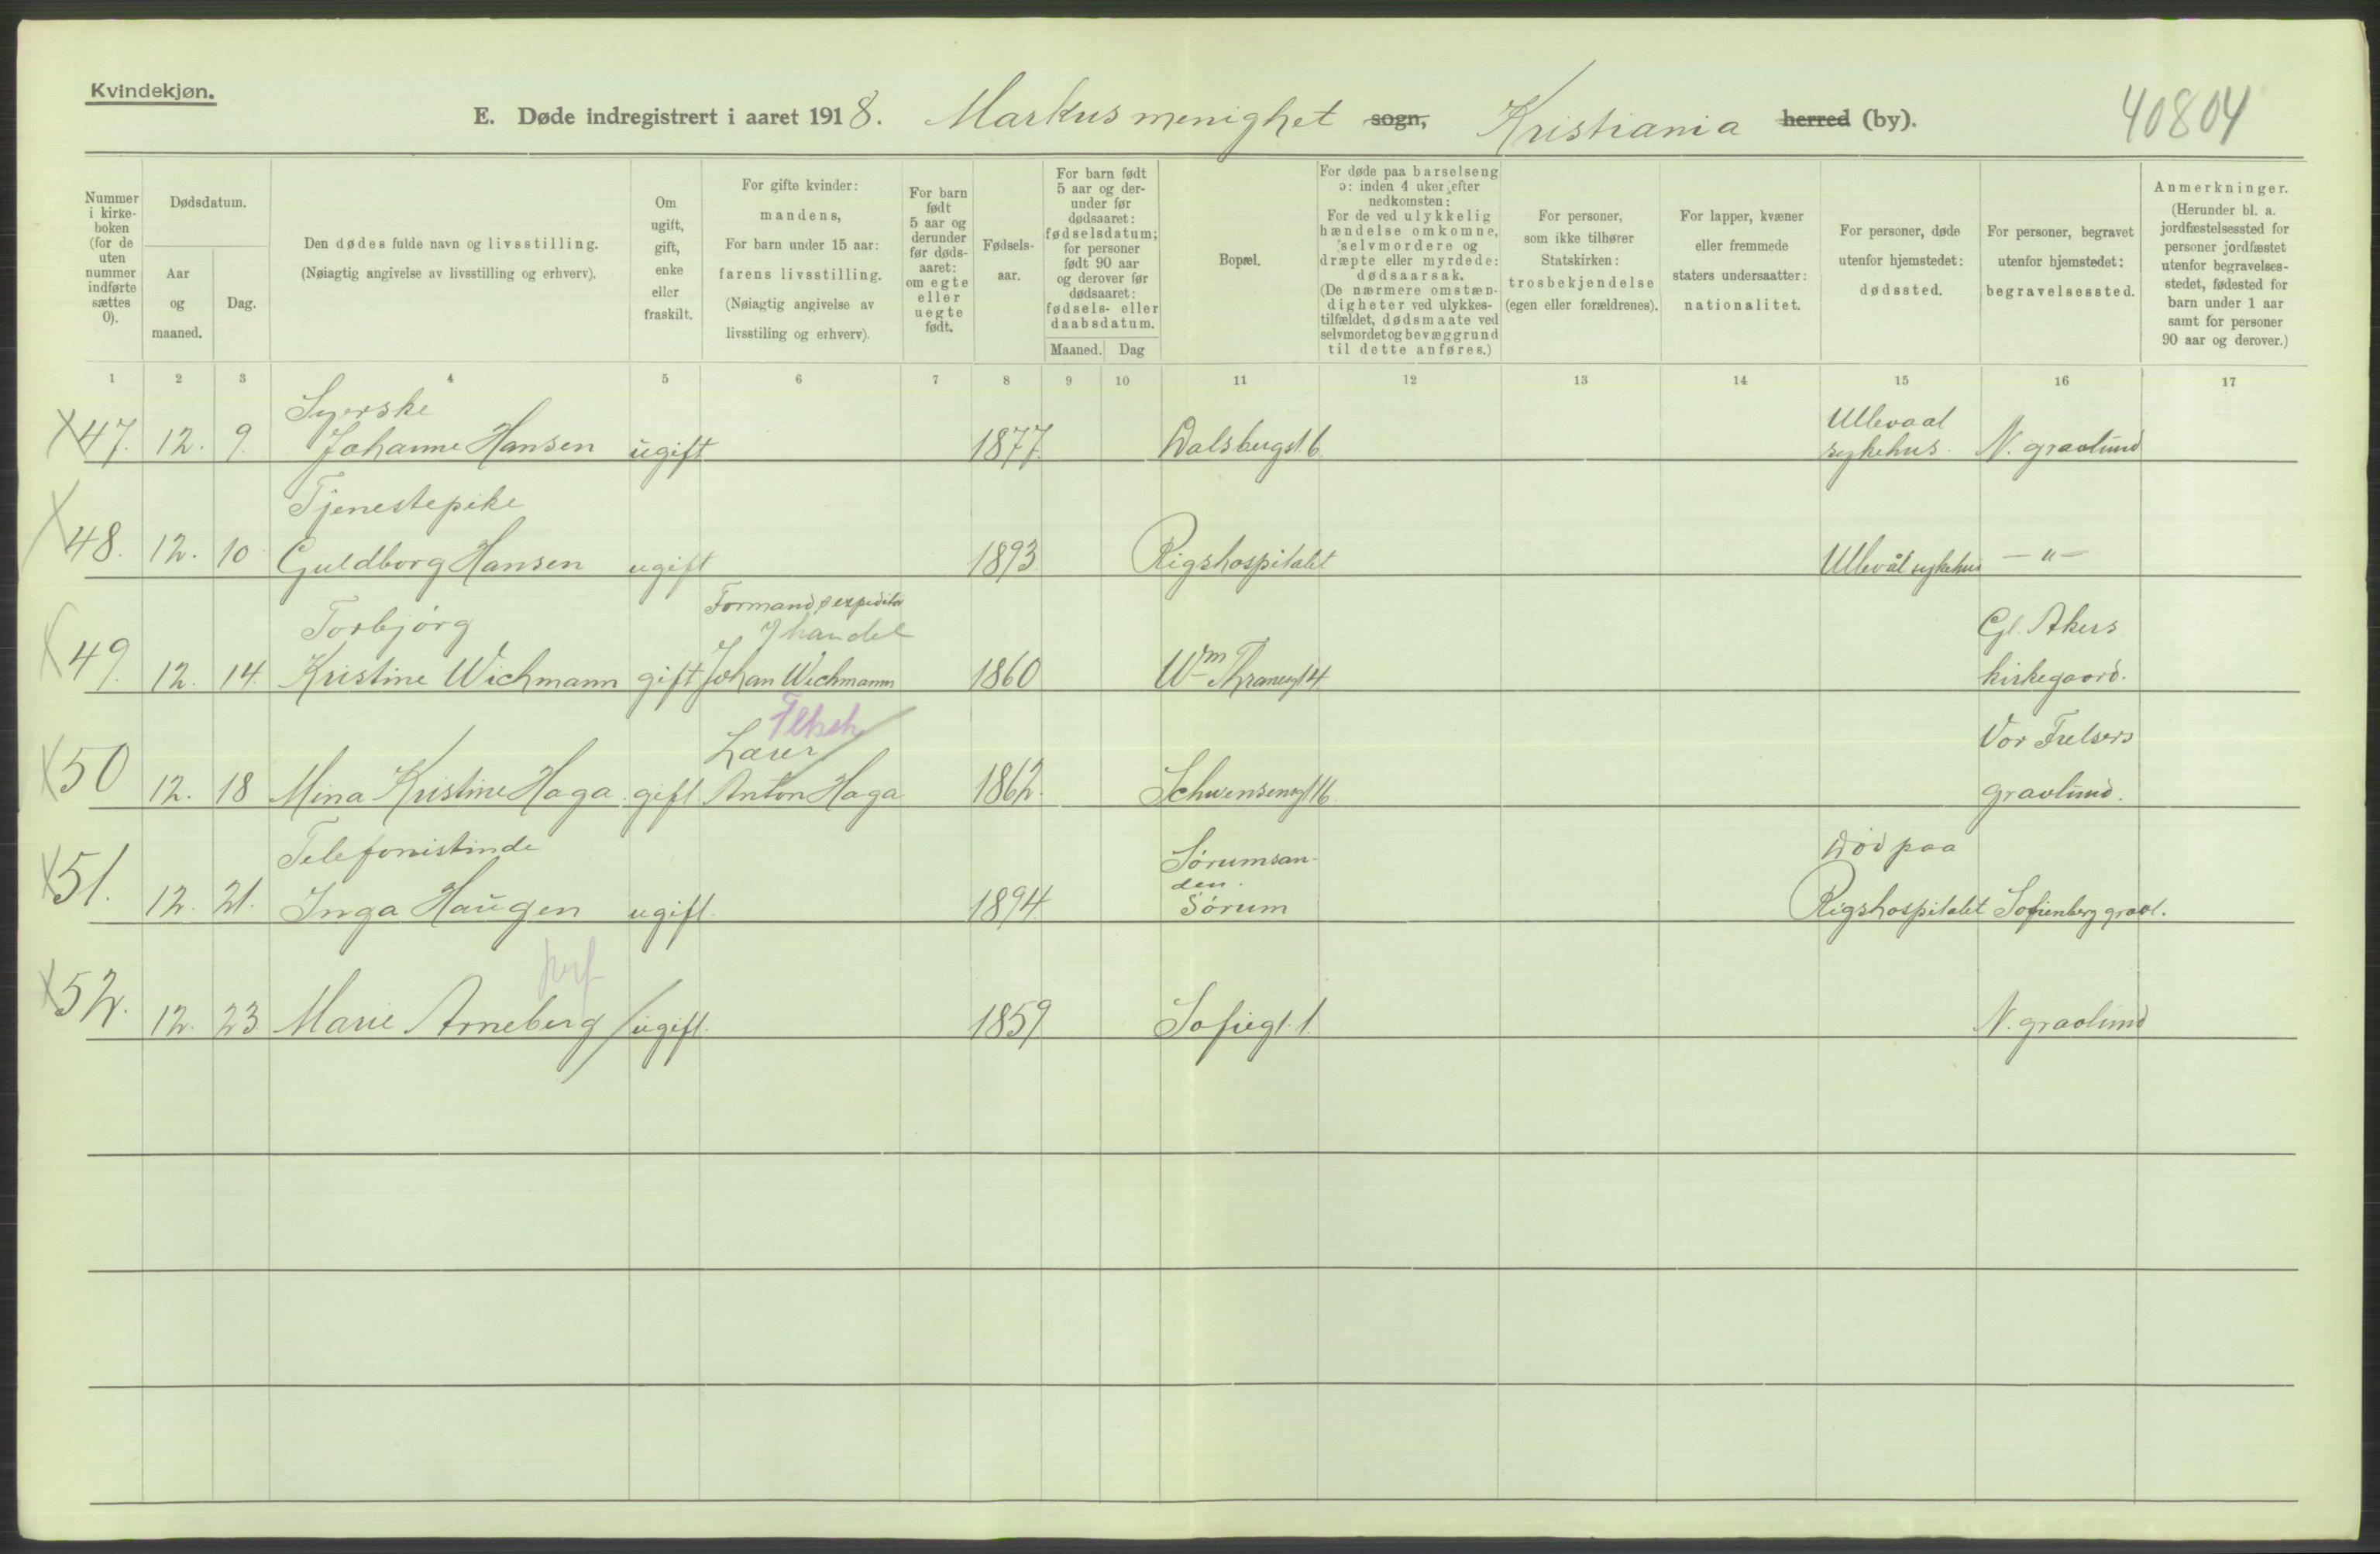 Kvindekjøn.
E. Døde indregistrert i aaret 1918. Markus menighet sogn, Kristiania herred (by).
40804
Nummer i kirke-
boken
(for de
uten
nummer
indførte
sættes
0).
Dødsdatum.
Aar
og
maaned.
Dag.
Den dødes fulde navn og livsstilling.
(Nøiagtig angivelse av livsstilling og erhverv).
Om
ugift,
gift,
enke
eller
fraskilt.
For gifte kvinder:
mandens,
For barn under 15 aar:
farens livsstilling.
(Nøiagtig angivelse av
livsstiling og erhverv).
For barn
født
5 aar og
derunder
før døds-
aaret:
om egte
eller
uegte
født.
Fødsels-
aar.
For barn født
5 aar og der-
under før
dødsaaret:
fødselsdatum;
for personer
født 90 aar
og derover før
dødsaaret:
fødsels- eller
daabsdatum.
Maaned. Dag
Bopæl.
For døde paa barselseng
ɔ: inden 4 uker efter
nedkomsten:
For de ved ulykkelig
hændelse omkomne,
selvmordere og
dræpte eller myrdede:
dødsaarsak.
(De nærmere omstæn-
digheter ved ulykkes-
tilfældet, dødsmaate ved
selvmordet og bevæggrund
til dette anføres.)
For personer,
som ikke tilhører
Statskirken:
trosbekjendelse
(egen eller forældrenes).
For lapper, kvæner
eller fremmede
staters undersaatter:
nationalitet.
For personer, døde
utenfor hjemstedet:
dødssted.
For personer, begravet
utenfor hjemstedet:
begravelsessted.
Anmerkninger.
(Herunder bl. a.
jordfæstelsessted for
personer jordfæstet
utenfor begravelses-
stedet, fødested for
barn under 1 aar
samt for personer
90 aar og derover.)
1 2 3 4 5 6 7 8 9 10 11 12 13 14 15 16 17
Syerske
Ullevaal
47. 12. 9. Johanne Hansen ugift 1877. Dalsbergst. 6 sykehus. N. gravlund
Tjenestepike
48. 12. 10 Guldborg Hansen ugift 1893 Rigshospitalet Ullevål sykehus —"—
Formand, expeditør
Torbjørg
J handel
Gl. Akers
49. 12. 14. Kristine Wichmann gift Johan Wichmann 1860 Wm Thranesgt 4 kirkegaard.
Lærer
Vor Frelsers
50 12. 18 Mina Kristine Haga gift Anton Haga 1862. Schwensensgt 16 gravlund.
Telefonistinde
Sørumsan-
den.
Død paa
51. 12. 21. Inga Haugen ugift. 1894. Sørum Rigshospitalet Sofienberg gravl.
52. 12. 23. Marie Arneberg ugift. 1859 Sofiegt. 1. N. gravlund